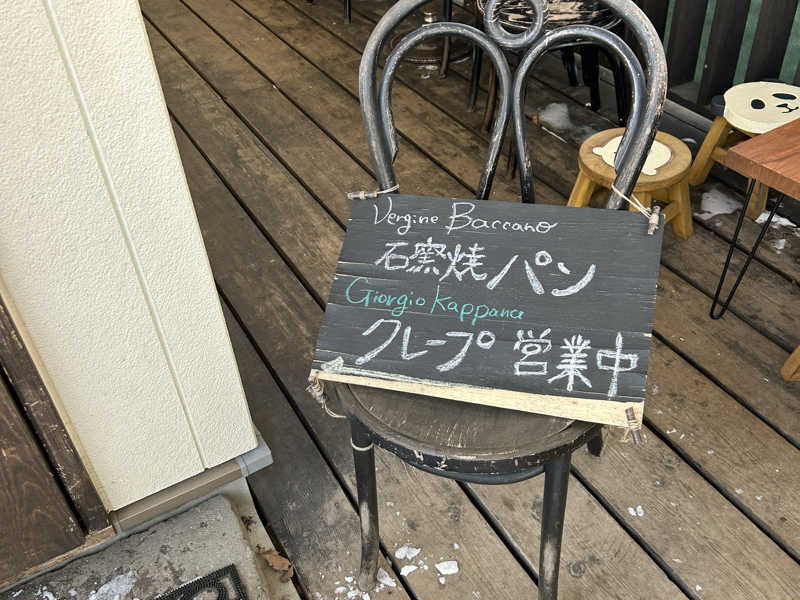 Vergine Baccano
石窯焼パン
Giorgio Kappana
クレープ営業中